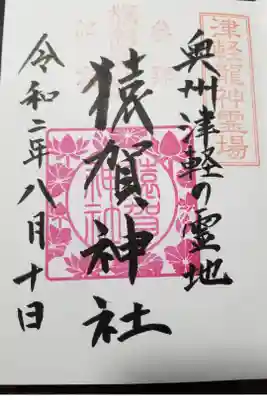 津軽龍神霊場
奥州津軽の霊地
猿賀神社
令和二年八月十日